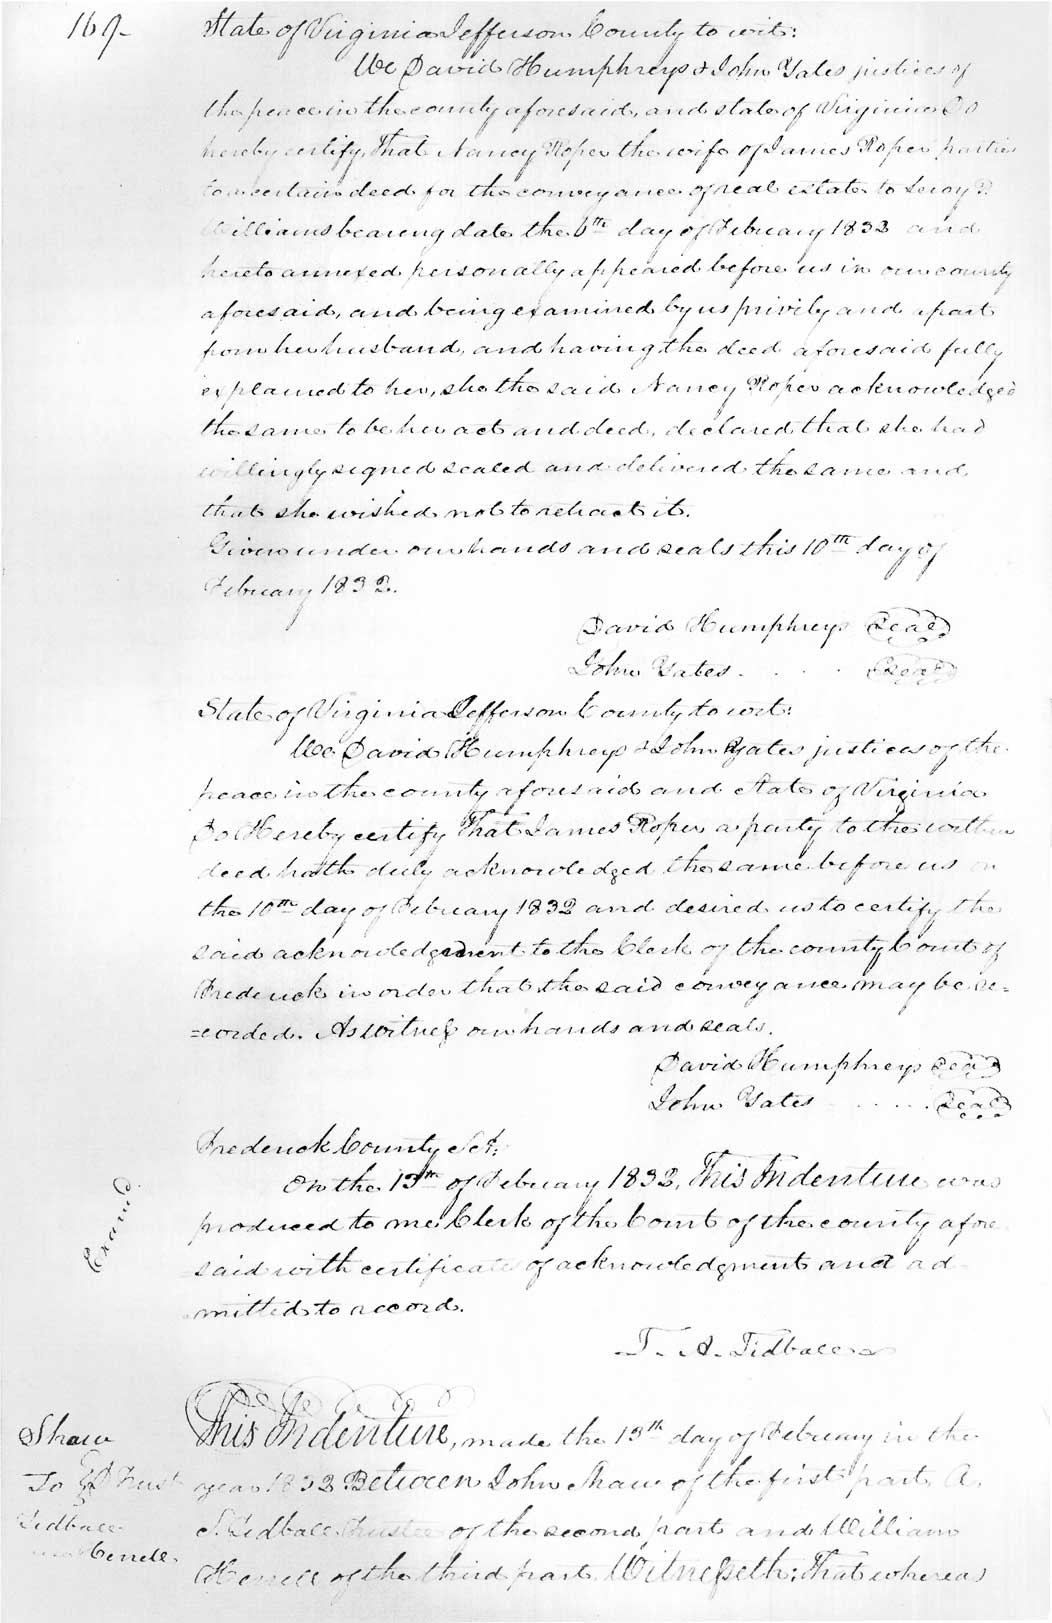 169.
State of Virginia Jefferson County to wit:
We David Humphreys & John Yates justices of
the peace in the county aforesaid, and state of Virginia Do
hereby certify, That Nancy Roper the wife of James Roper parties
to a certain deed for the conveyance of real estate to Leroy P.
Williams bearing date the 6th day of February 1832 and
hereto annexed personally appeared before us in our county
aforesaid, and being examined by us privily and apart
from her husband, and having the deed aforesaid fully
explained to her, she the said Nancy Roper acknowledged
the same to be her act and deed, declared that she had
willingly signed sealed and delivered the same and
that she wished not to retract it.
Given under our hands and seals this 10th day of
February 1832.
David Humphreys Seal
John Yates . . . Seal
State of Virginia Jefferson County to wit:
We David Humphreys & John Yates justices of the
peace in the county aforesaid and State of Virginia
Do Hereby certify That James Roper a party to the within
deed hath duly acknowledged the same before us on
the 10th day of February 1832 and desired us to certify the
said acknowledgement to the Clerk of the county Court of
Frederick in order that the said conveyance may be re=
=corded. As witness our hands and seals.
David Humphreys Seal
John Yates . . . . . Seal
Frederick County Sct:
On the 13th of February 1832, This Indenture was
produced to me Clerk of the Court of the county afore
said with certificate of acknowledgment and ad
mitted to record.
T. A. Tidball
Examd
This Indenture, made the 13th day of February in the
year 1832 Between John Shaw of the first part A.
S. Tidball Trustee of the second part and William
Herrell of the third part, Witnesseth: That whereas
Shaw
To Trust
Tidball
Herrell